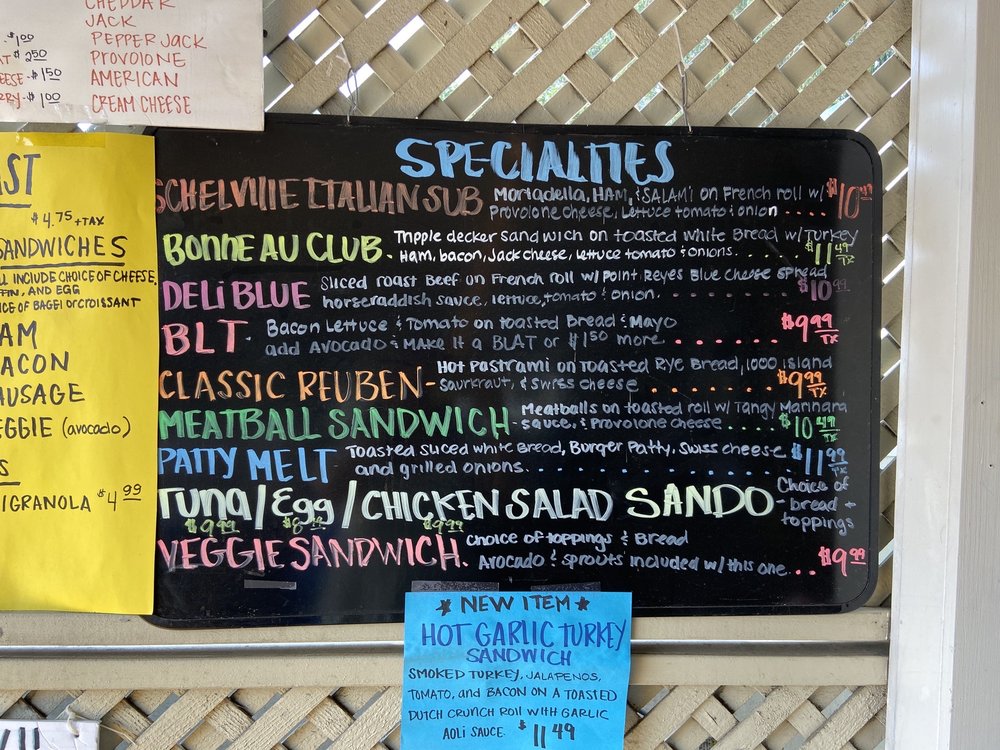 CHEDDAR
JACK
$1.00
PEPPER JACK
$2.50
PROVOLONE
$1.50
AMERICAN
$1.00
CREAM CHEESE
$4.75 +TAX
SANDWICHES
INCLUDE CHOICE OF CHEESE,
AND EGG
OF BAGEL OR CROISSANT
(avocado)
GRANOLA $4.99
SPECIALTIES
SCHELVILLE ITALIAN SUB Mortadella, HAM, & SALAMI on French roll w/
Provolone cheese, Lettuce tomato & onion .... $10
BONNEAU CLUB. Tripple decker sandwich on toasted white Bread w/Turkey
Ham, bacon, Jack cheese, lettuce tomato & onions... $11.49 TX
DELI BLUE Sliced roast Beef on French roll w/ Point Reyes Blue cheese spread
horseraddish sauce, lettuce, tomato & onion. ....... $10
BLT. Bacon Lettuce & Tomato on toasted Bread & Mayo
add Avocado & MAKE it a BLAT or $1.50 more ...... $9.99 TX
CLASSIC REUBEN - Hot Pastrami on Toasted Rye Bread, 1000 island
Saurkraut, & Swiss cheese ....... $9.99 TX
MEATBALL SANDWICH. Meatballs on toasted roll w/ Tangy Marinara
sauce, & Provolone cheese .... $10.49 TX
PATTY MELT Toasted sliced white Bread, Burger Patty, Swiss cheese
and grilled onions............. $11.99 TX
Tuna/Egg/CHICKEN SALAD SANDO - Choice of
bread +
toppings
$9.99 $9.99
VEGGIE SANDWICH. choice of toppings & Bread
Avocado & sprouts included w/ this one... $9.99
★ NEW ITEM ★
HOT GARLIC TURKEY
SANDWICH
SMOKED TURKEY, JALAPENOS,
TOMATO, and BACON ON A TOASTED
DUTCH CRUNCH ROLL WITH GARLIC
AOLI SAUCE. $11.49